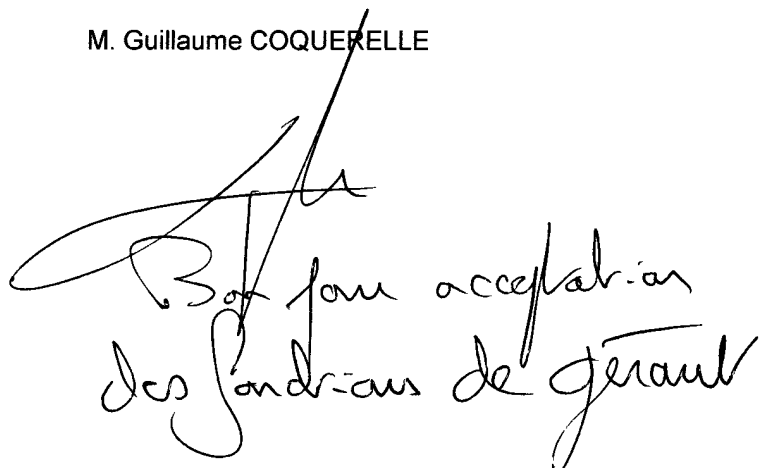 M. Guillaume COQUERELLE
Bon pour acceptation
des fonctions de gérant